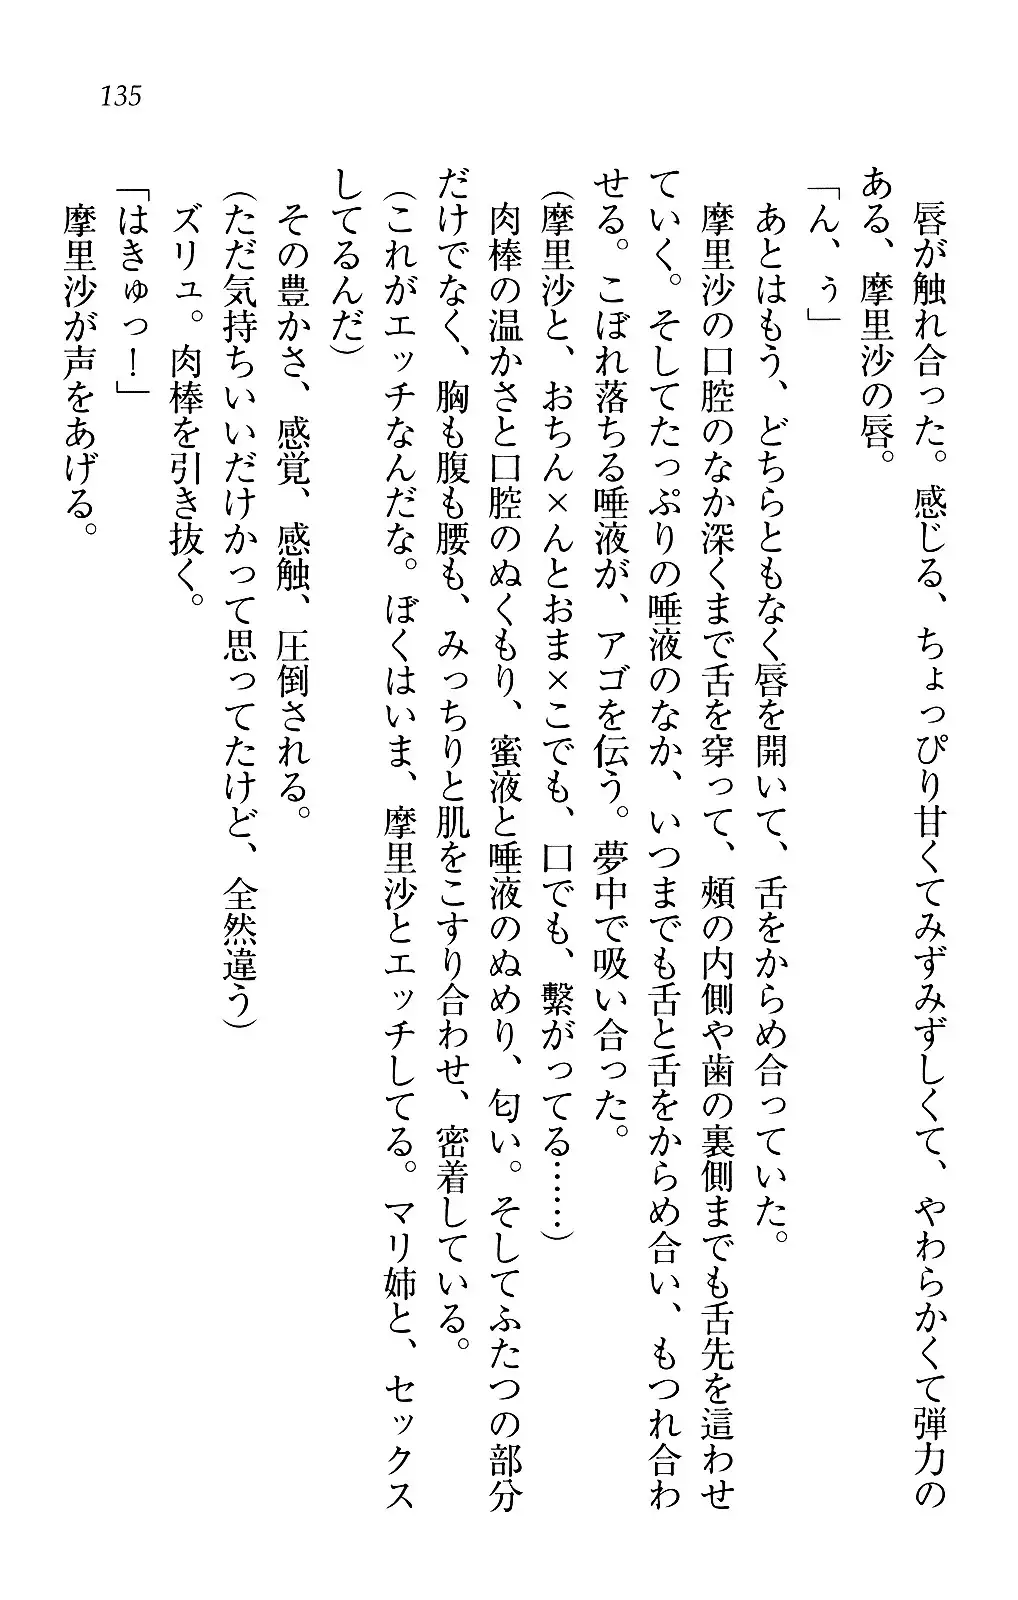 135
唇が触れ合った。感じる、ちょっぴり甘くてみずみずしくて、やわらかくて弾力の
ある、摩里沙の唇。
「ん、ぅ」
あとはもう、どちらともなく唇を開いて、舌をからめ合っていた。
摩里沙の口腔のなか深くまで舌を穿って、頰の内側や歯の裏側までも舌先を這わせ
ていく。そしてたっぷりの唾液のなか、いつまでも舌と舌をからめ合い、もつれ合わ
せる。こぼれ落ちる唾液が、アゴを伝う。夢中で吸い合った。
(摩里沙と、おちん×んとおま×こでも、口でも、繫がってる……)
肉棒の温かさと口腔のぬくもり、蜜液と唾液のぬめり、匂い。そしてふたつの部分
だけでなく、胸も腹も腰も、みっちりと肌をこすり合わせ、密着している。
(これがエッチなんだな。ぼくはいま、摩里沙とエッチしてる。マリ姉と、セックス
してるんだ)
その豊かさ、感覚、感触、圧倒される。
(ただ気持ちいいだけかって思ってたけど、全然違う)
ズリュ。肉棒を引き抜く。
「はきゅっ！」
摩里沙が声をあげる。